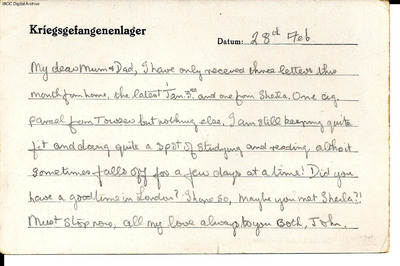 IBCC Digital Archive
Kriegsgefangenenlager
Datum: 28th Feb
My dear Mum & Dad, I have only received three letters this
month from home, the latest Jan. 3rd and one from Sheila. One cig
parcel from Towser but nothing else. I am still keeping quite
fit and doing quite a spot of studying and reading altho it
sometimes falls off for a few days at a time! Did you
have a good time in London? I hope so, Maybe you met Sheila?!
Must stop now, all my love always to you Both, John.